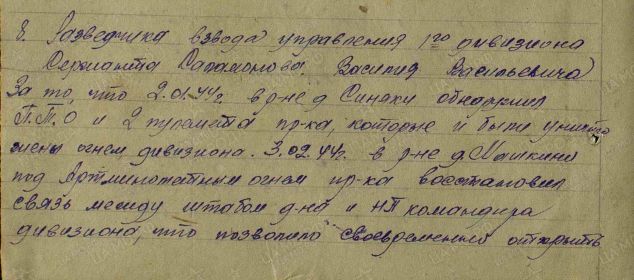 8. Разведчика взвода управления 1го дивизиона
Сержанта Саламонова Василия Васильевича
За то, что 2.01.44г. в р-не д Синяки обнаружил
П.Т.О и 2 пулемета пр-ка, которые и были уничто
жены огнем дивизиона. 3.02.44г. в р-не д Машкина
под Артминометным огнем пр-ка восстановил
связь между штабом д-на и НП командира
дивизиона, что позволило своевременно открыть